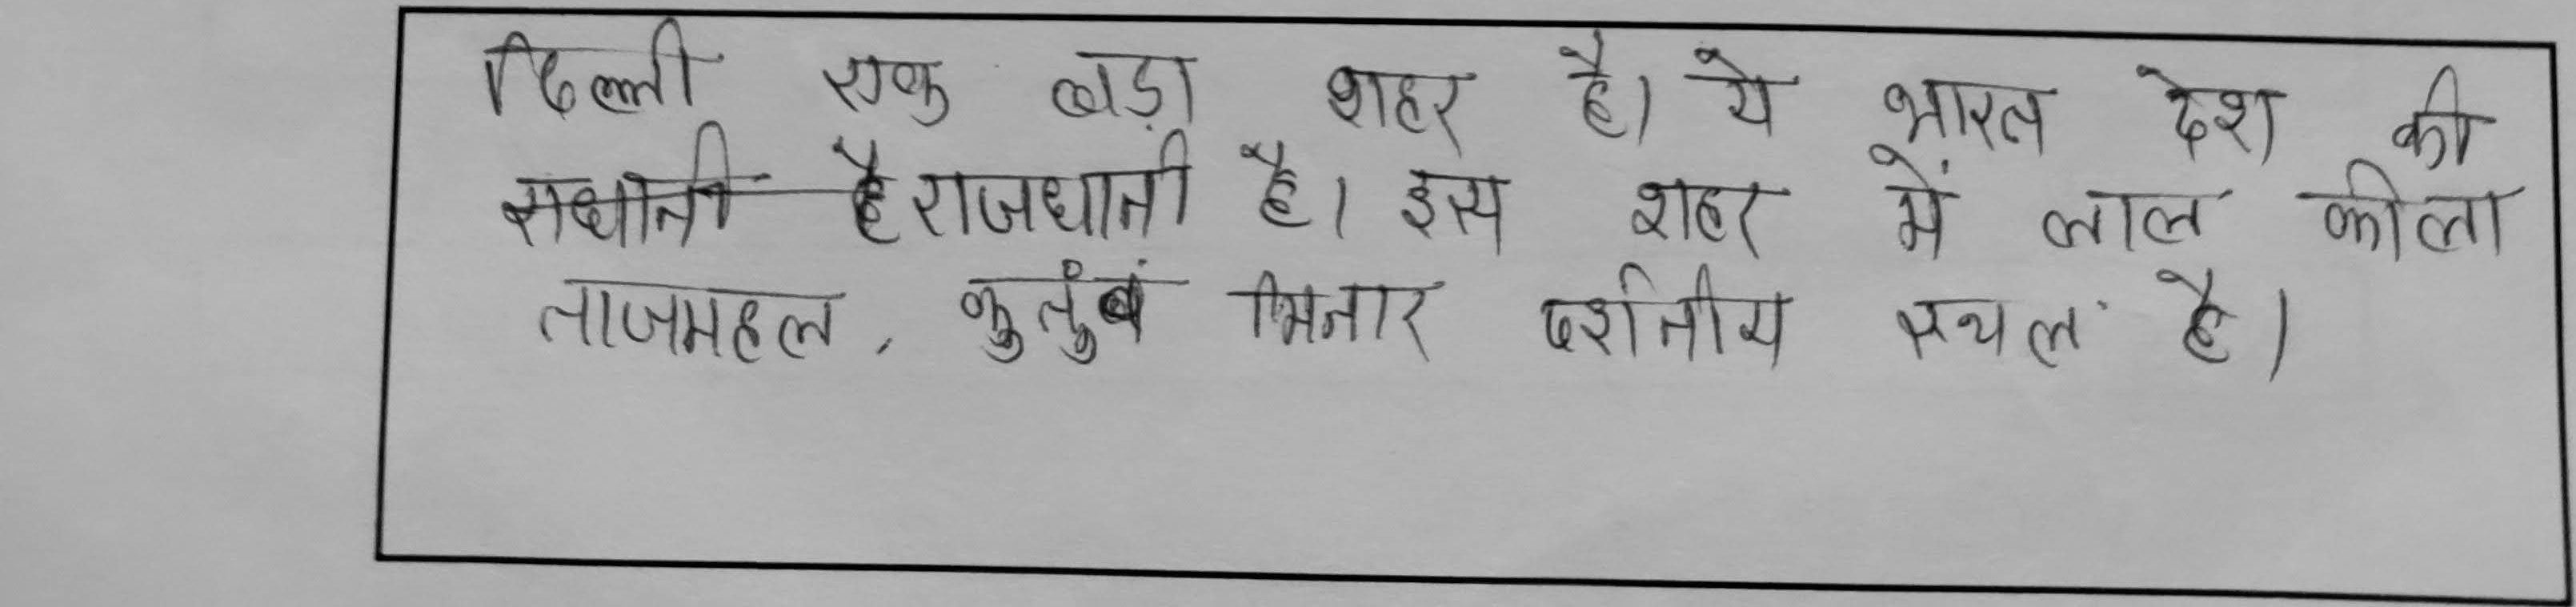 दिल्ली एक बड़ा शहर है। ये भारत देश की
राजधानी है। इस शहर में लाल कीला
ताजमहल, कुतुंबं मिनार दर्शनीय स्थल है।